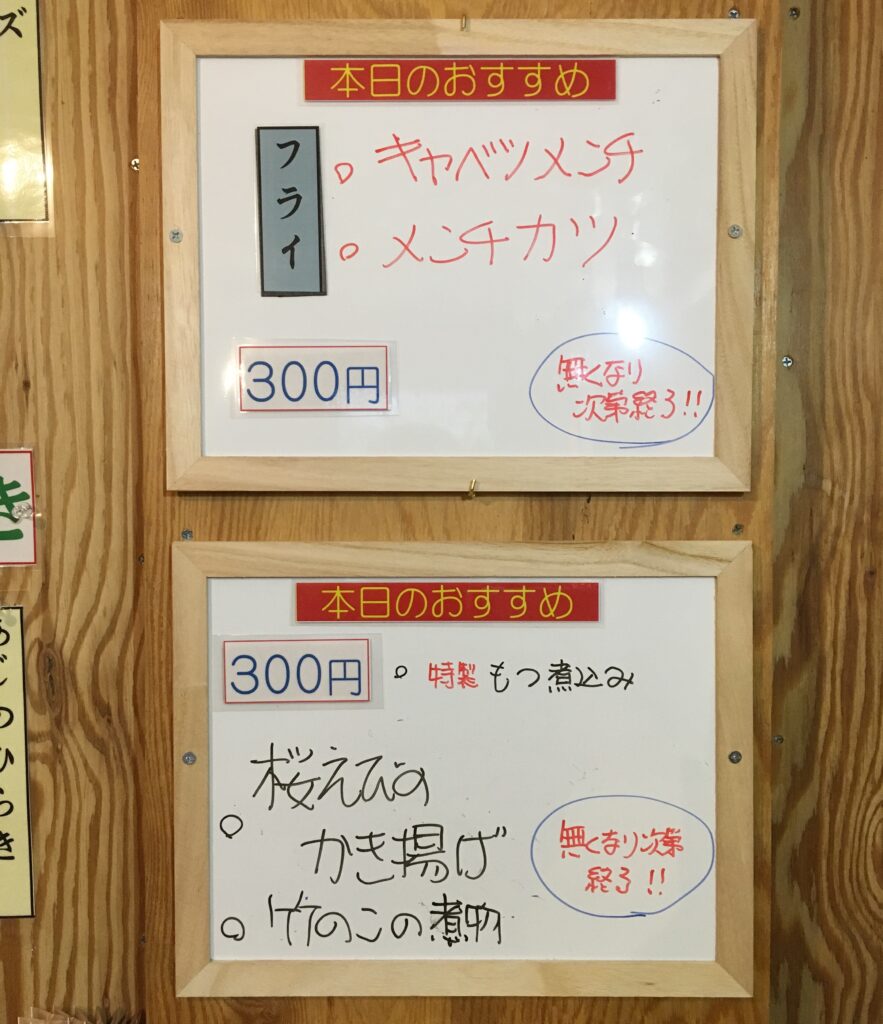 ズ
本日のおすすめ
フライ
。キャベツメンチ
。メンチカツ
300円
無くなり
次第終了!!
き
本日のおすすめ
300円
。特製 もつ煮込み
。桜えびの
かき揚げ
。竹のこの煮物
無くなり次第
終了!!
あじのひらき